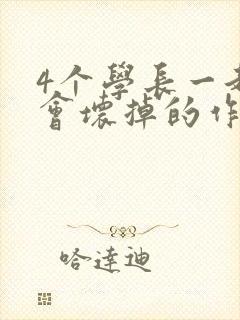 4个學長一起
會壞掉的作
哈達迪